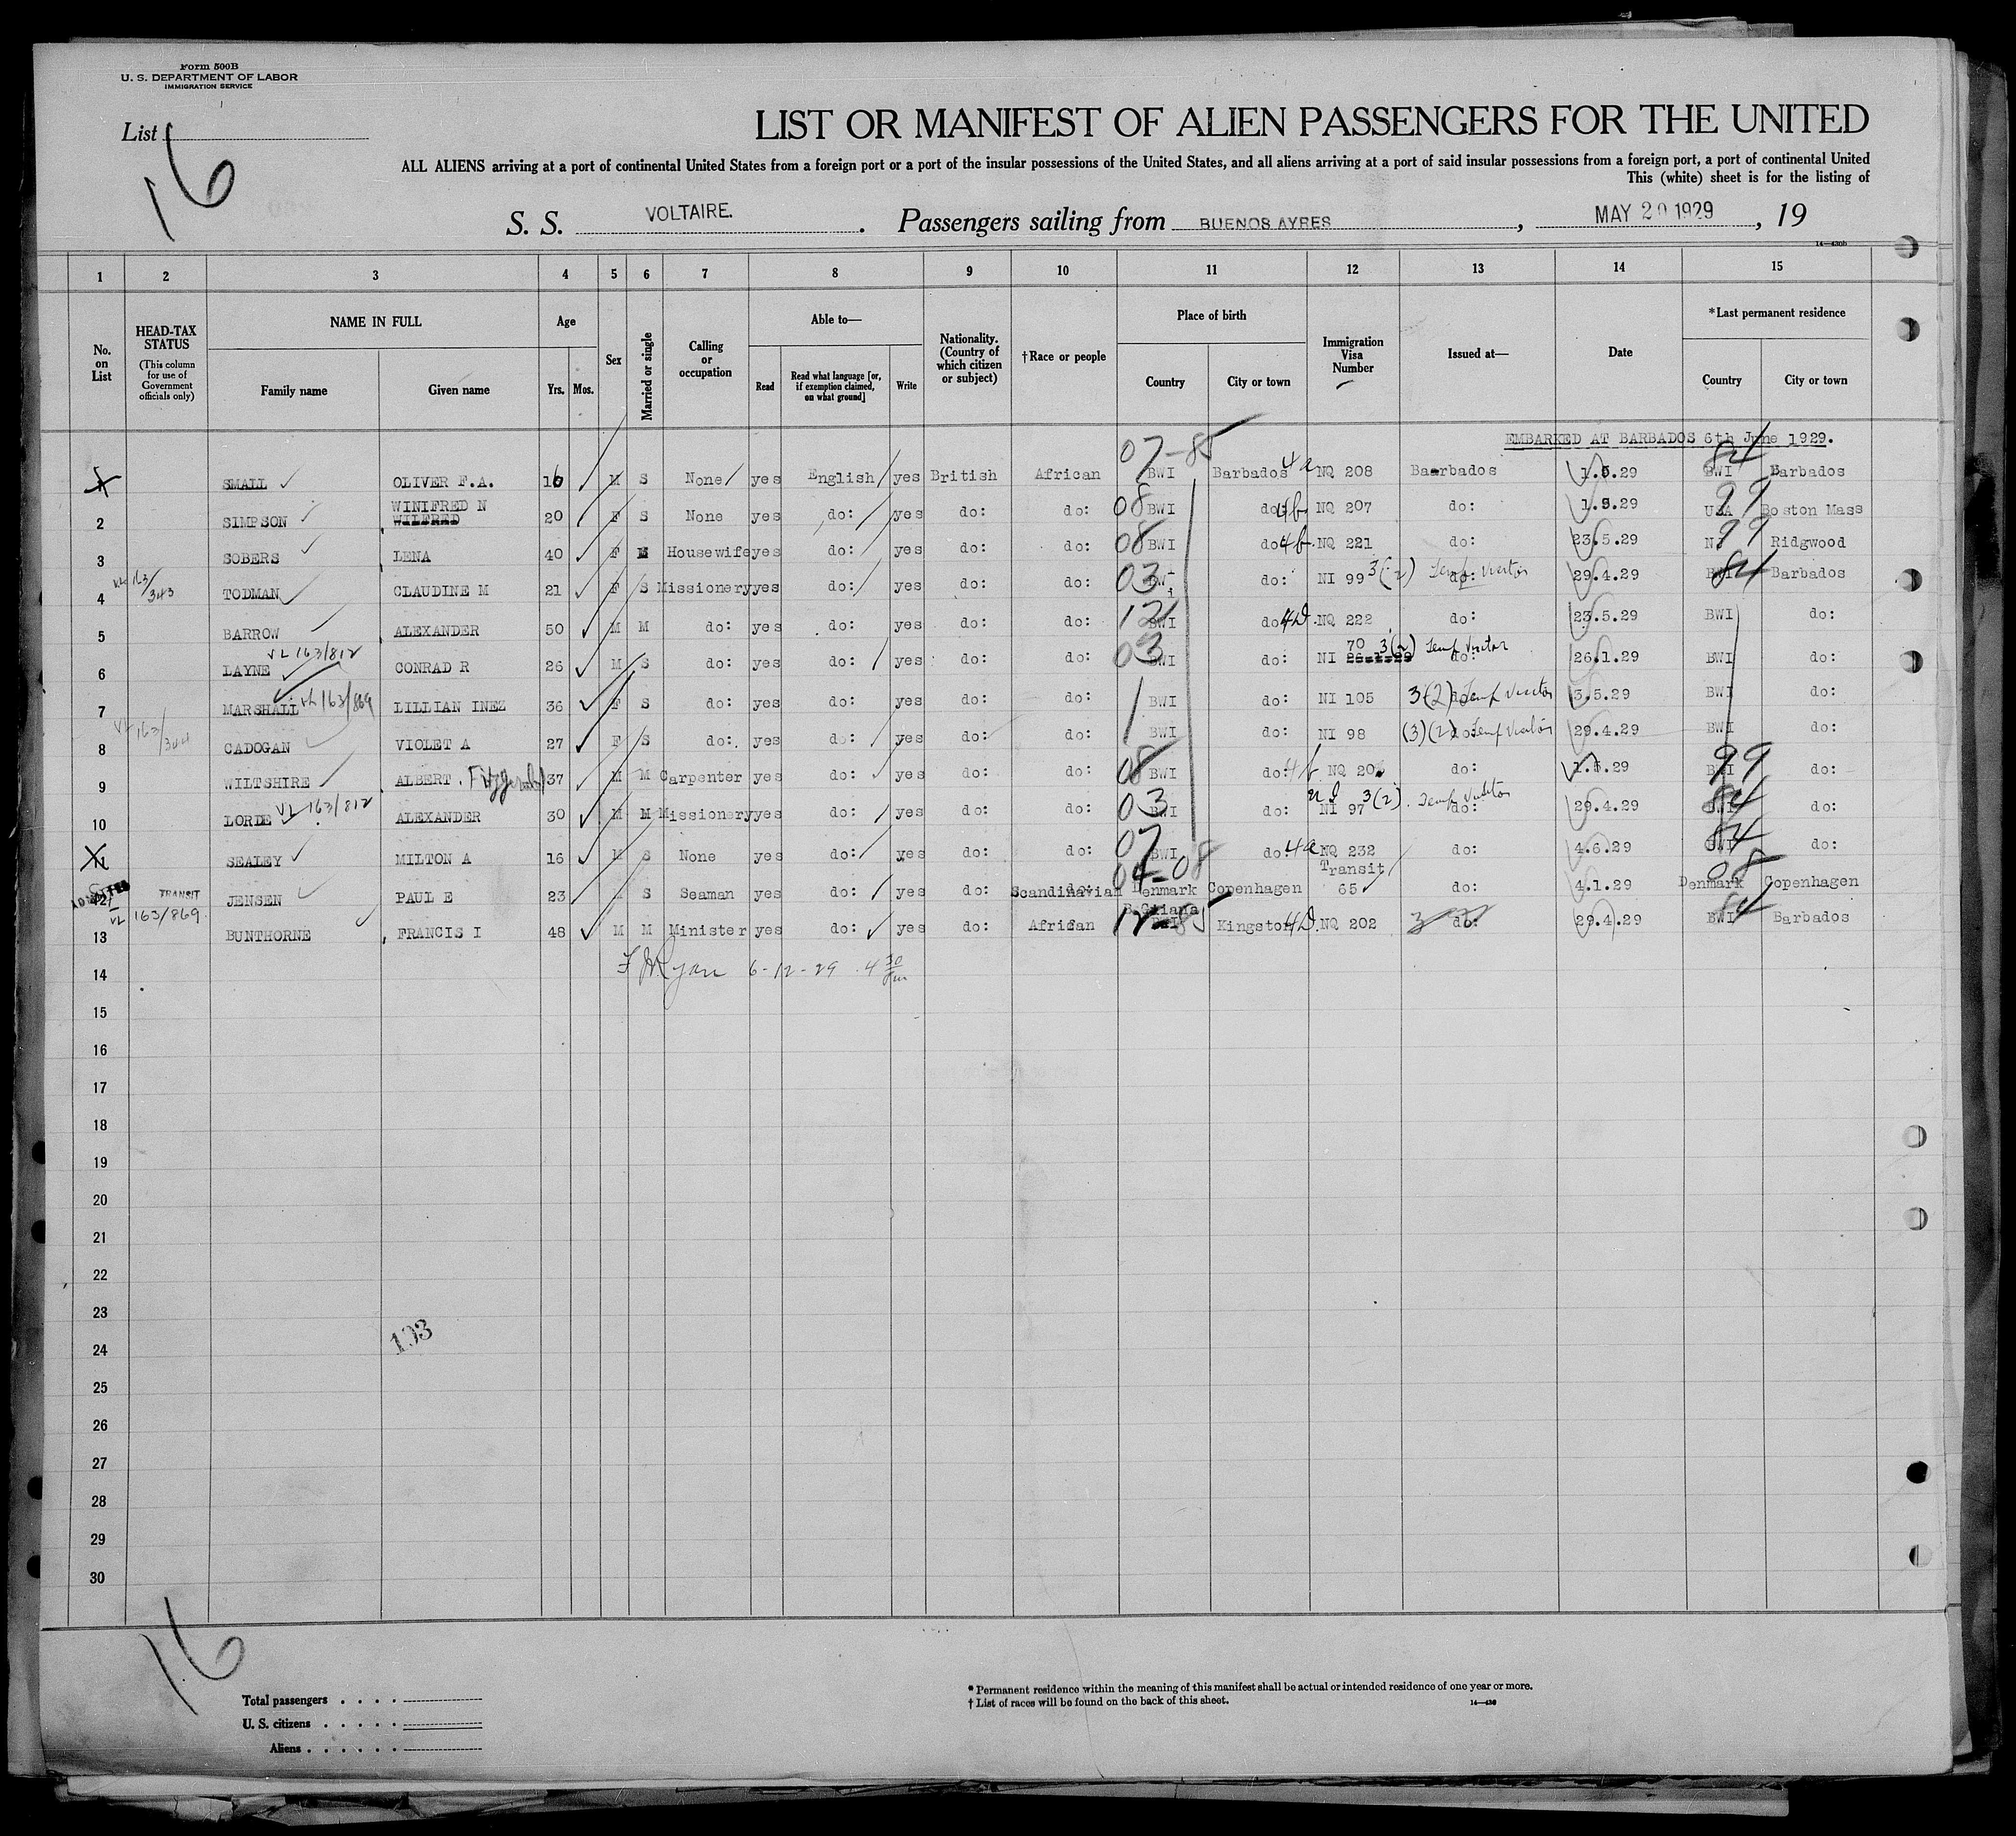 Form 500B
U. S. DEPARTMENT OF LABOR
IMMIGRATION SERVICE
List 16
LIST OR MANIFEST OF ALIEN PASSENGERS FOR THE UNITED
ALL ALIENS arriving at a port of continental United States from a foreign port or a port of the insular possessions of the United States, and all aliens arriving at a port of said insular possessions from a foreign port, a port of continental United
This (white) sheet is for the listing of
S. S. VOLTAIRE. Passengers sailing from BUENOS AYRES, MAY 20 1929, 19
14—430b
1 2 3 4 5 6 7 8 9 10 11 12 13 14 15
No. on List
HEAD-TAX STATUS (This column for use of Government officials only)
NAME IN FULL Family name Given name
Age Yrs. Mos.
Sex
Married or single
Calling or occupation
Able to— Read Read what language [or, if exemption claimed, on what ground] Write
Nationality. (Country of which citizen or subject)
†Race or people
Place of birth Country City or town
Immigration Visa Number
Issued at—
Date
*Last permanent residence Country City or town
EMBARKED AT BARBADOS 6th June 1929.
07-85 84
SMALL OLIVER F.A. 16 M S None yes English yes British African BWI Barbados 4a NQ 208 Baarbados 1.5.29 BWI Barbados
WINIFRED N
2 SIMPSON WILFRED 20 F S None yes do: yes do: do: 08 BWI do: 4b NQ 207 do: 1.5.29 99 USA Boston Mass
3 SOBERS LENA 40 F M Housewife yes do: yes do: do: 08 BWI do: 4b NQ 221 do: 23.5.29 99 NJ Ridgwood
VL 163/343
4 TODMAN CLAUDINE M 21 F S Missionery yes do: yes do: do: 03 BWI do: NI 99 3(2) Temp Visitor do: 29.4.29 84 BWI Barbados
5 BARROW ALEXANDER 50 M M do: yes do: yes do: do: 12 BWI do: 4D NQ 222 do: 23.5.29 BWI do:
VL 163/812 70 3(2) Temp Visitor
6 LAYNE CONRAD R 26 M S do: yes do: yes do: do: 03 BWI do: NI 26.1.29 do: 26.1.29 BWI do:
7 MARSHALL VL 163/869 LILLIAN INEZ 36 F S do: yes do: yes do: do: BWI do: NI 105 3(2) do: Temp Visitor 3.5.29 BWI do:
VL 163/344
8 CADOGAN VIOLET A 27 F S do: yes do: yes do: do: BWI do: NI 98 (3)(2) do: Temp Visitor 29.4.29 BWI do:
9 WILTSHIRE ALBERT Fitzgerald 37 M M Carpenter yes do: yes do: do: 08 BWI do: 4b NQ 20 do: 1.5.29 99 BWI do:
VL 163/812 3(2) Temp Visitor
10 LORDE ALEXANDER 30 M M Missionery yes do: yes do: do: 03 BWI do: NI 97 do: 29.4.29 84 BWI do:
11 SEALEY MILTON A 16 M S None yes do: yes do: do: 07 BWI do: 4a NQ 232 do: 4.6.29 84 BWI do:
Transit
ADMITTED 12 TRANSIT JENSEN PAUL E 23 S Seaman yes do: yes do: Scandinavian 04-08 Denmark Copenhagen 65 do: 4.1.29 08 Denmark Copenhagen
VL 163/869 B.Guiana
13 BUNTHORNE FRANCIS I 48 M M Minister yes do: yes do: African 12-85 BWI Kingston 4D NQ 202 3 do: 29.4.29 84 BWI Barbados
14 F M Ryan 6-12-29 4 30 pm
15
16
17
18
19
20
21
22
23
103
24
25
26
27
28
29
30
16
Total passengers . . . .
U. S. citizens . . . . .
Aliens . . . . . .
* Permanent residence within the meaning of this manifest shall be actual or intended residence of one year or more.
† List of races will be found on the back of this sheet.
14—430